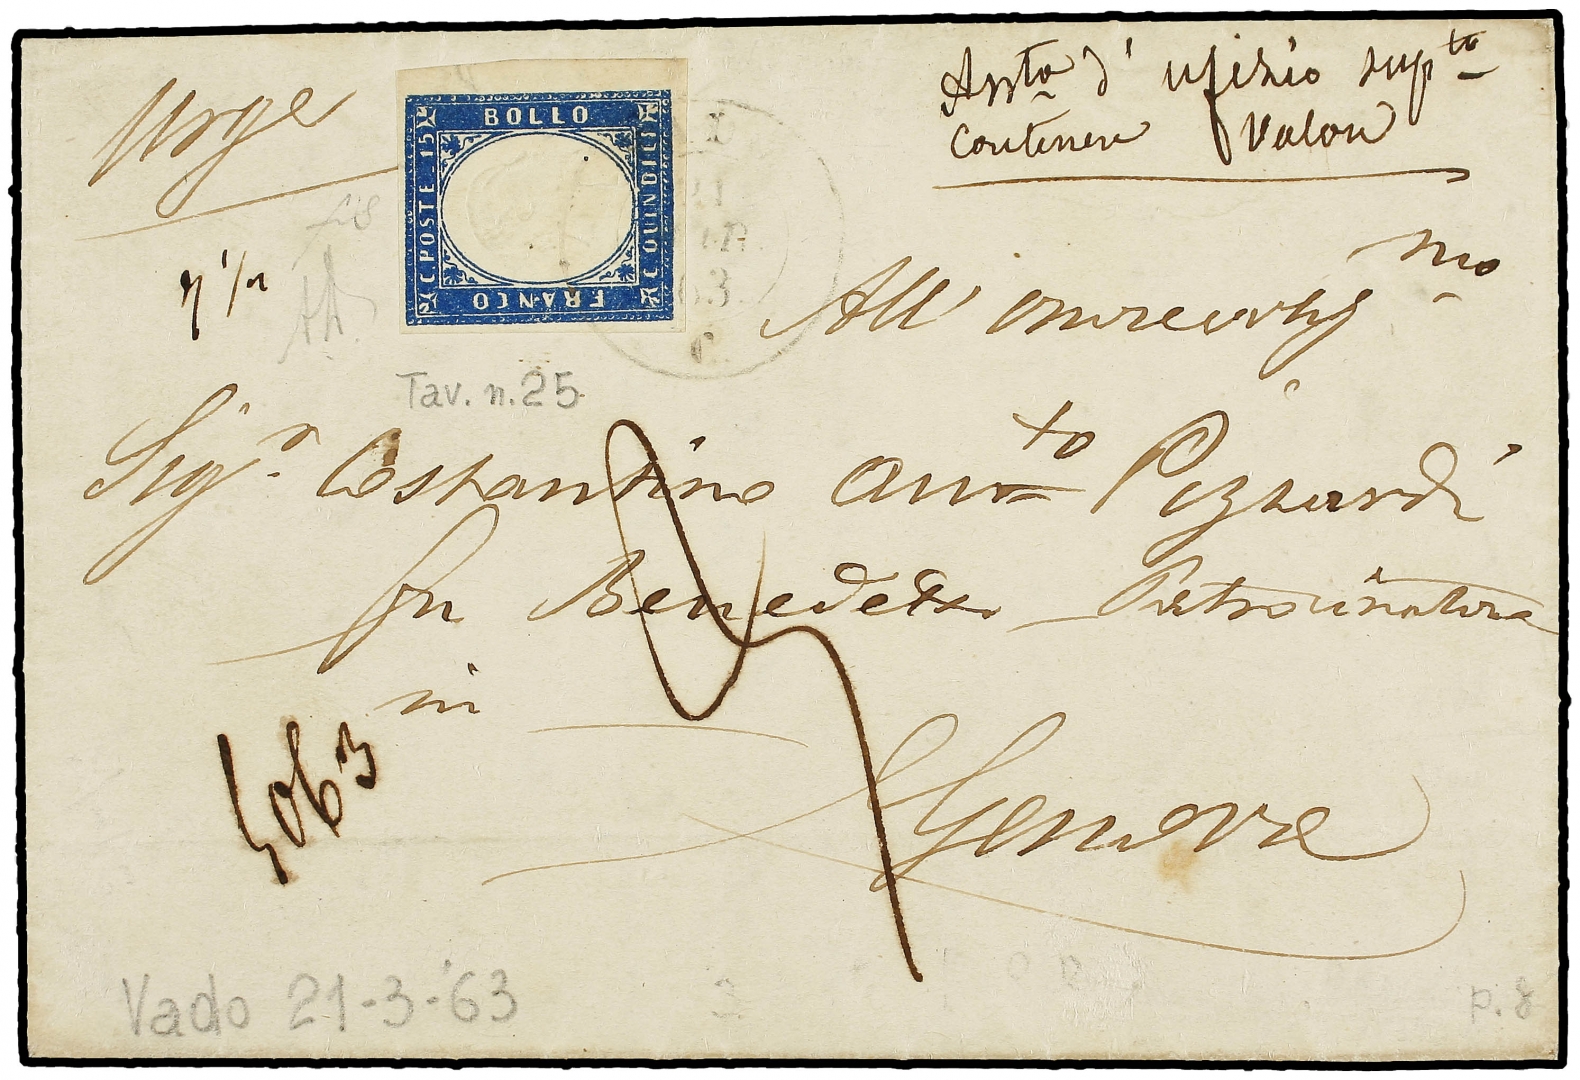 Urge
Assta d' ufizio suppta
contenere Valori
BOLLO
C. POSTE 15
C. QUINDICI
FRANCO
21
63
7 1/2
All' Onorevolis mo
Tav. n. 25
Sigr. Costantino Anto Pizzardi
fu Benedetto Patrocinatore
in
Genova
5063
Vado 21-3-'63
3
p. 8